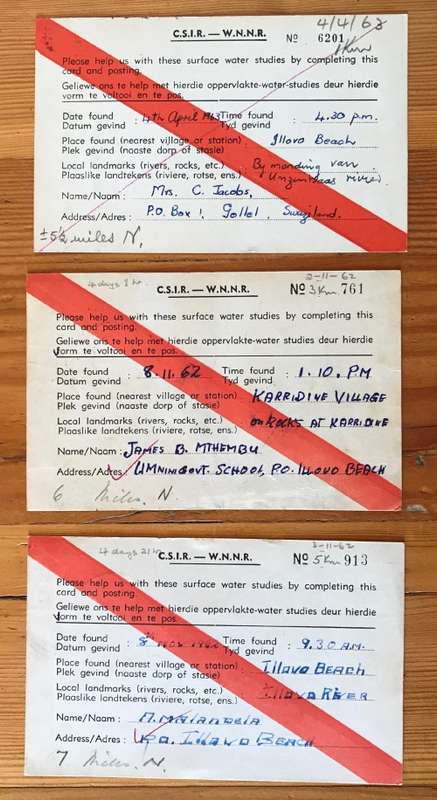 4/4/63
C.S.I.R. — W.N.N.R. Nº 6201
1Km
Please help us with these surface water studies by completing this
card and posting.
Geliewe ons te help met hierdie oppervlakte-water-studies deur hierdie
vorm te voltooi en te pos.
Date found : 4th April 1963 Time found : 4.30 p.m.
Datum gevind Tyd gevind
Place found (nearest village or station) : Illovo Beach
Plek gevind (naaste dorp of stasie)
Local landmarks (rivers, rocks, etc.) : By monding van
Plaaslike landtekens (riviere, rotse, ens.) rivier
Name/Naam : Mrs. C. Jacobs,
Address/Adres : P.O. Box 1, Gollel, Swaziland.
±5½ miles N.
4 days 2-11-62
C.S.I.R. — W.N.N.R. Nº 3Km 761
Please help us with these surface water studies by completing this
card and posting.
Geliewe ons te help met hierdie oppervlakte-water-studies deur hierdie
vorm te voltooi en te pos.
Date found : 8.11.62 Time found : 1.10. PM
Datum gevind Tyd gevind
Place found (nearest village or station) : KARRIDINE VILLAGE
Plek gevind (naaste dorp of stasie)
Local landmarks (rivers, rocks, etc.) : ON ROCKS AT KARRIDINE
Plaaslike landtekens (riviere, rotse, ens.)
Name/Naam : JAMES B. MTHEMBU
Address/Adres : UMNINI GOVT. SCHOOL, P.O. ILLOVO BEACH
6 Miles. N.
4 days 21 hr 2-11-62
C.S.I.R. — W.N.N.R. Nº 5Km 913
Please help us with these surface water studies by completing this
card and posting.
Geliewe ons te help met hierdie oppervlakte-water-studies deur hierdie
vorm te voltooi en te pos.
Date found : 8th Nov 1962 Time found : 9.30 A.M.
Datum gevind Tyd gevind
Place found (nearest village or station) : ILLOVO BEACH
Plek gevind (naaste dorp of stasie)
Local landmarks (rivers, rocks, etc.) : ILLOVO RIVER
Plaaslike landtekens (riviere, rotse, ens.)
Name/Naam :
Address/Adres : P.O. ILLOVO BEACH
7 Miles. N.